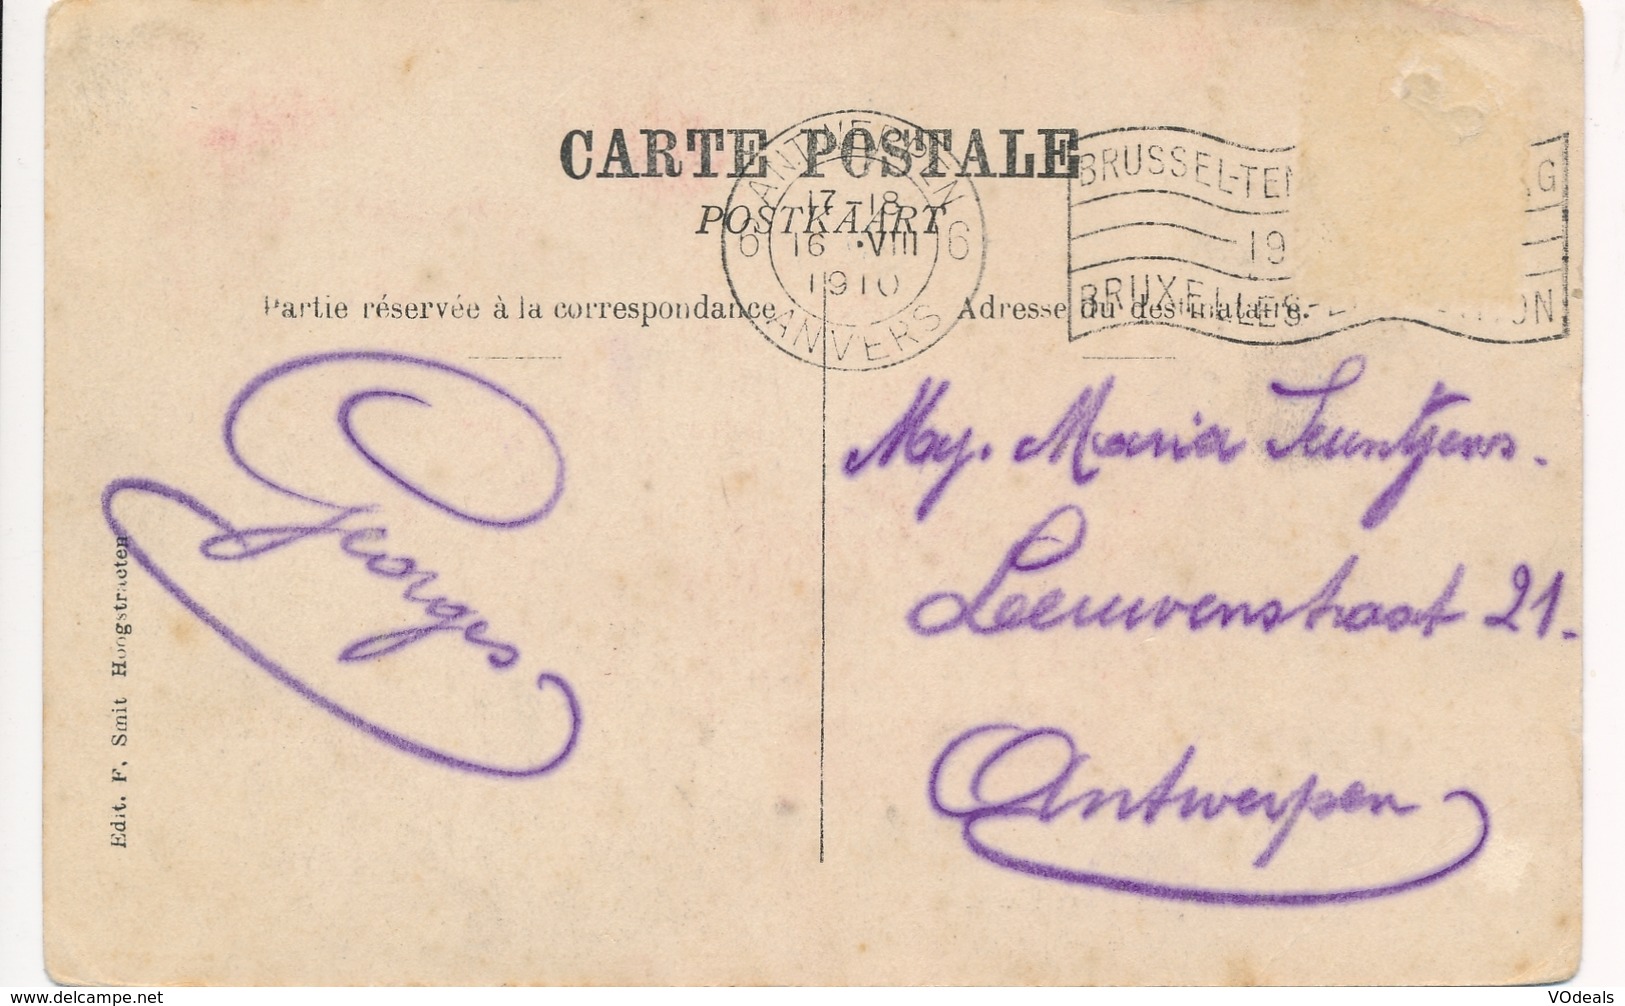 CARTE POSTALE
POSTKAART
ANTWERPEN
17-18
6 16 VIII 6
1910
ANVERS
BRUSSEL-TEN
G
19
BRUXELLES-E ON
Partie réservée à la correspondance
Adresse du destinataire.
Georges
Mej. Maria
Leeuwenstraat 21.
Antwerpen
Edit. F. Smit Hoogstraeten
www.delcampe.net
VOdeals